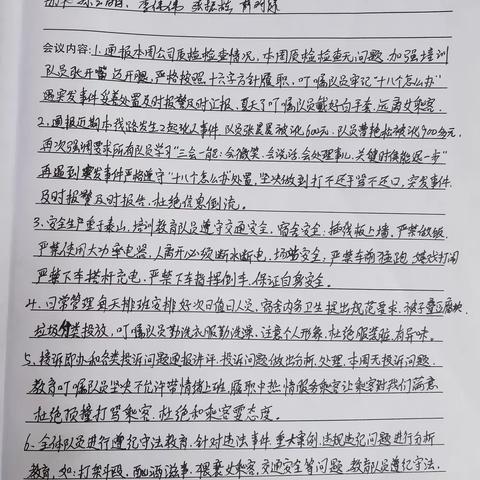 会议内容:1.通报本周公司质检检查情况,本周质检检查无问题,加强培训
队员张开嘴迈开腿,严格按照十六字方针履职,叮嘱队员牢记"十八个怎么办"
遇突发事件妥善处置及时报警及时汇报,夏天了叮嘱队员戴好白手套,远离女乘客.
2.通报近期本线路发生2起讹人事件,队员张晨晨被讹600元.队员曹艳松被讹900多元,
再次强调要求所有队员学习"三会一能:会微笑、会说话、会处理事儿、关键时候能退一步"
再遇到突发事件严格遵守"十八个怎么办"处置,坚决做到打不还手骂不还口,突发事件
及时报警及时报告,杜绝信息倒流。
3.安全生产重于泰山,培训教育队员遵守交通安全、宿舍安全:插线板上墙,严禁做饭
严禁使用大功率电器,人离开必须断水断电,场站安全,严禁车前猛跑、嬉戏打闹
严禁下车搭衬充电,严禁下车指挥倒车,保证自身安全。
4.日常管理每天排班安排好次日值日人员,宿舍内务卫生提出规范要求,被子叠豆腐块,
垃圾分类投放,叮嘱队员勤洗衣服勤洗澡,注意个人形象,杜绝服装脏有异味。
5、接诉即办和各类投诉问题通报讲评,投诉问题做出分析、处理,本周无投诉问题.
教育叮嘱队员坚决不允许带情绪上班,履职中热情服务乘客让乘客对我们满意
杜绝顶撞打骂乘客,杜绝和乘客耍态度。
6、全体队员进行遵纪守法教育,针对违法事件、重大案例、违规违纪问题进行分析
教育,如:打架斗殴、酗酒滋事、猥亵女乘客、交通安全等问题,教育队员遵纪守法,